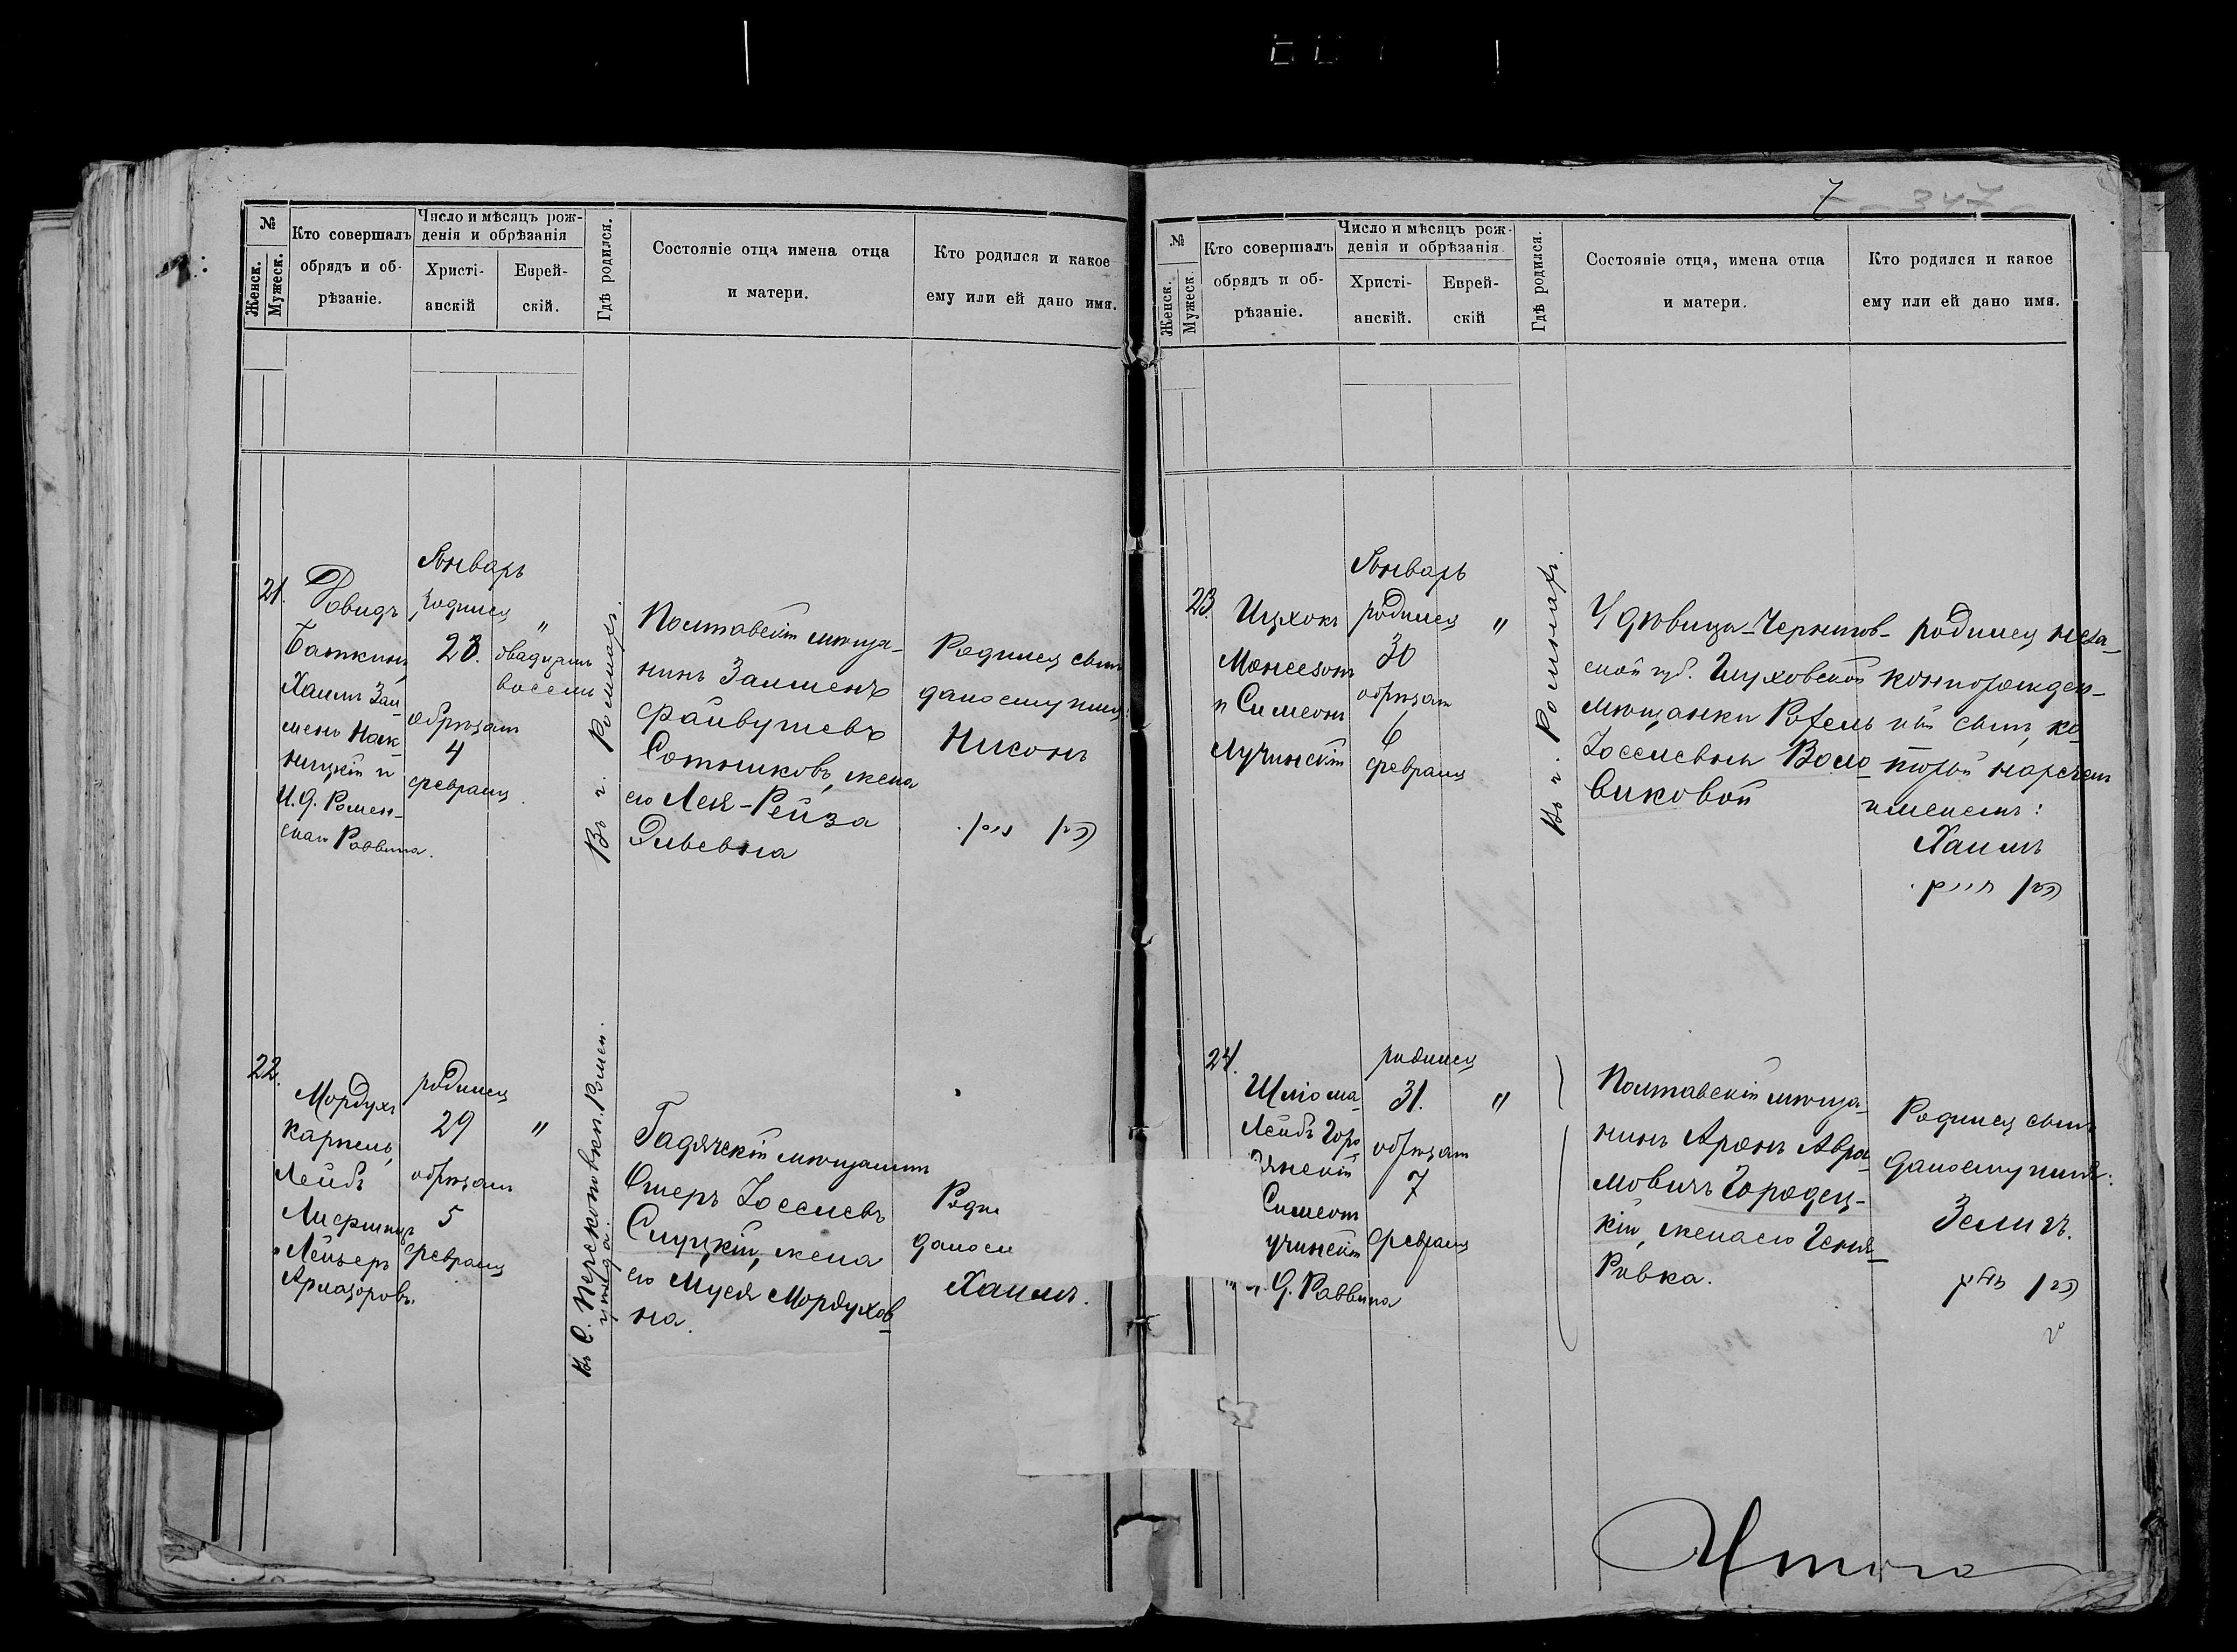 7 347
№
Женск.
Мужеск.
Кто совершалъ
обрядъ и об-
рѣзаніе.
Число и мѣсяцъ рож-
денія и обрѣзанія
Христі-
анскій
Еврей-
скій.
Гдѣ родился.
Состояніе отца имена отца
и матери.
Кто родился и какое
ему или ей дано имя.
21.
Довидъ
Баткинъ,
Хаимъ Зал-
менъ
и
И. д. Ромен-
скаго Раввина.
Январь
родился
28.
обрѣзанъ
4
февраля
"
двадцать
восемь
Въ г. Ромнахъ.
Полтавскій мѣща-
нинъ Залменъ
Файвушевъ
Сотниковъ, жена
его Лея-Рейза
Эльевна
Родился сынъ
дано ему имя:
Нисонъ
22.
Мордухъ
Карпель,
Лейбъ
и Лейзеръ
родился
29
обрѣзанъ
5
февраля
"
Въ С. Перекоповкѣ. Ромен.
уѣзда.
Гадячскій мѣщанинъ
Омеръ Іосселевъ
Слуцкій, жена
его Муся Мордухов
на.
Роди
дано ем
Хаимъ.
№
Женск.
Мужеск.
Кто совершалъ
обрядъ и об-
рѣзаніе.
Число и мѣсяцъ рож-
денія и обрѣзанія.
Христі-
анскій.
Еврей-
скій
Гдѣ родился.
Состояніе отца, имена отца
и матери.
Кто родился и какое
ему или ей дано имя.
23.
Ицхокъ
и Симеонъ
Лучинскій
Январь
родился
30
обрѣзанъ
6
февраля
"
Въ г. Ромнахъ.
У дѣвицы-Чернигов-
ской губ. Глуховской
мѣщанки Рохель
Іосселевны Воло
виковой
родился неза-
коннорожден-
ный сынъ, ко
торый нареченъ
именемъ:
Хаимъ
חיים בן
24.
Шлома-
Лейбъ Горо
Симеонъ
учинскій
и. д. Раввина
родился
31.
обрѣзанъ
7
февраля
"
Полтавскій мѣща-
нинъ Аронъ Авра-
мовичъ Городец-
кій, жена его Геня-
Ривка.
Родился сынъ
дано ему имя:
Зелигъ.
Итого